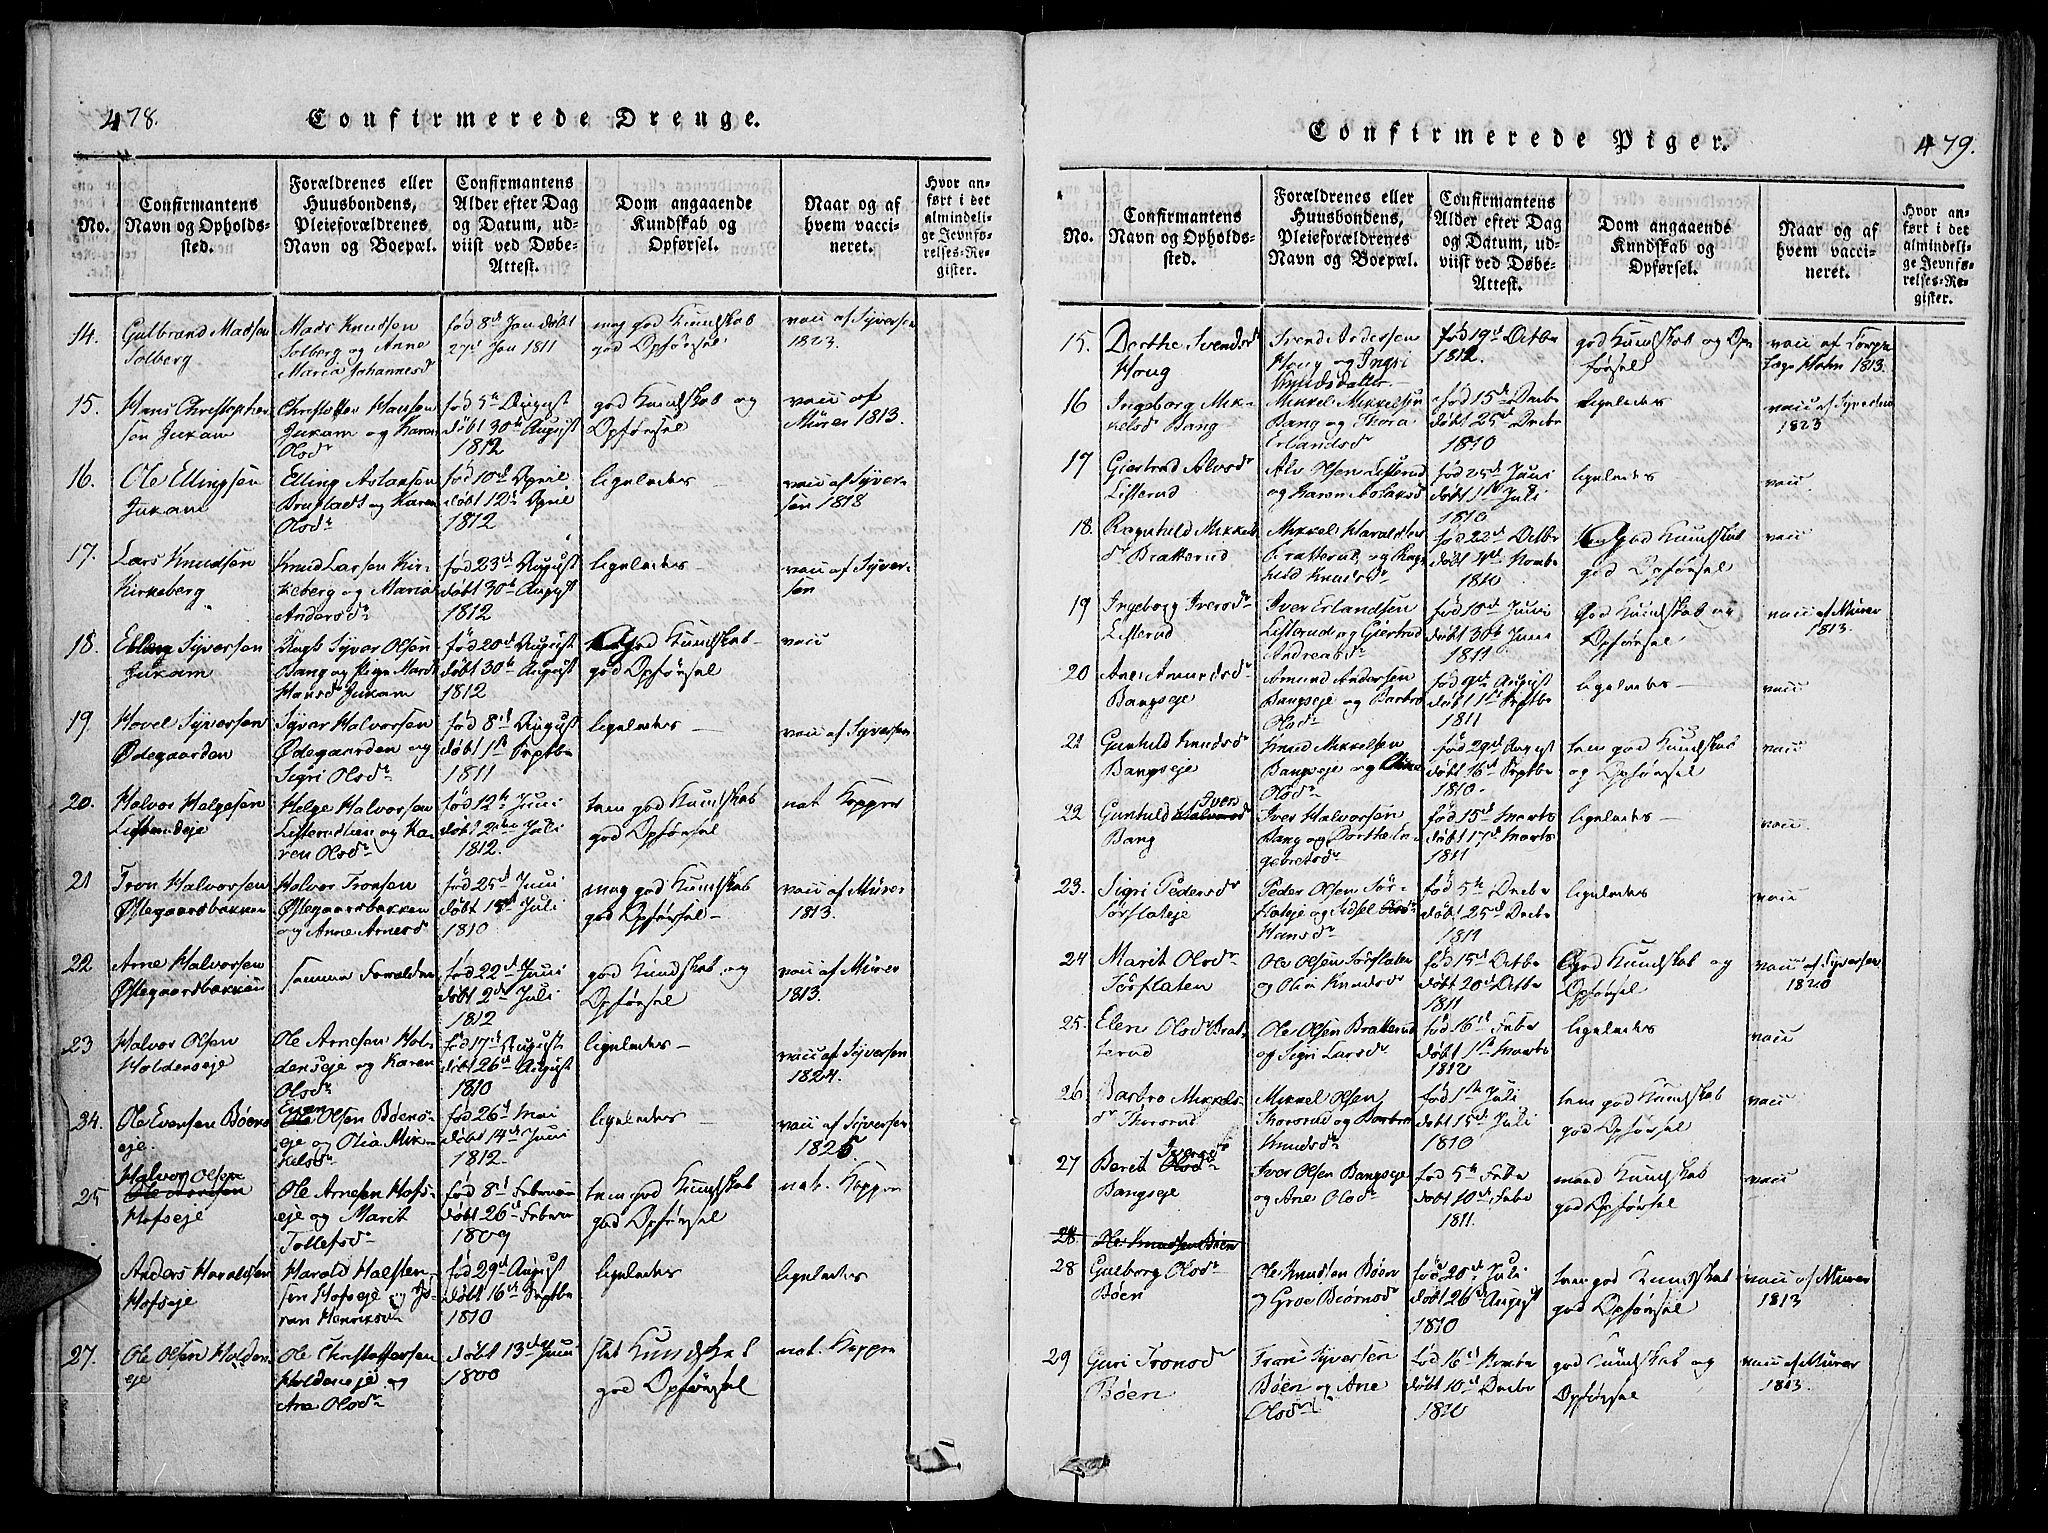 478.
Confirmerede Drenge.
No.
Confirmantens
Navn og Opholds-
sted.
Forældrenes eller
Huusbondens,
Pleieforældrenes
Navn og Boepæl.
Confirmantens
Alder efter Dag
og Datum, ud-
viist ved Døbe-
Attest.
Dom angaaende
Kundskab og
Opførsel.
Naar og af
hvem vacci-
neret.
Hvor an-
ført i det
almindeli-
ge Jevnfø-
relses-Re-
gister.
14.
Gulbrand Madsen
Solberg
Mads Knudsen
Solberg og Anne
Maria Johannesd
fød 8d Jan døbt
27d Jan 1811
mag god Kundskab
god Opførsel
vacc af Syversen
1823
15.
Hans Christopher
sen Jukam
Christoffer Hansen
Jukam og Karen
Olsdr
fød 5te August
døbt 30te August
1812
god Kundskab og
Opførsel
vacc af
Mürer 1813.
16.
Ole Ellingsen
Jukam
Elling Aslaksen
Brustadt og Karen
Olsdr
fød 10d April
døbt 12te April
1812
ligeledes
vacc af Syver-
sen 1818
17.
Lars Knudsen
Kirkeberg
Knud Larsen Kir-
keberg og Maria
Andersdr
fød 23d August
døbt 30te August
1812
ligeledes
vacc af Syver-
sen
18.
Elling Syversen
Jukam
Syver Olsen
Bang og Pigen Marit
Hansdr Jukam
fød 20d August
døbt 30te August
1812
god Kundskab
god Opførsel
vacc
19.
Hovel Syversen
Ødegaarden
Syver Halvorsen
Ødegaarden og
Sigri Olsdr
fød 8d August
døbt 1ste Septbr
1811
ligeledes
vacc af Syversen
20.
Halvor Helgesen
Listerudeje
Helge Halvorsen
Listerudeien og Ka-
ren Olsdr
fød 12te Juni
døbt 2den Juli
1812.
tem god Kundskab
god Opførsel
nat. Kopper
21
Tron Halvorsen
Østegaardsbakken
Halvor Tronsen
Østegaardsbakken
og Anne Arnesd
fød 25d Juni
døbt 18d Juli
1810
mag god Kundskab
god Opførsel
vacc af Mürer
1813.
22
Arne Halvorsen
Østegaardsbakken
samme Forældre
fød 22d Juni
døbt 2den Juli
1812
god Kundskab og
Opførsel
vacc af Mürer
1813.
23
Halvor Olsen
Holdenseje
Ole Arnesen Hol-
denseje og Karen
Olsdr
fød 17d August
døbt 26d August
1810
ligeledes
vacc af Syversen
1824.
24.
Ole Evensen Bøens
eje.
Even
Ole Olsen Bøens-
eje og Olia Mik-
kelsdr
fød 26d Mai
døbt 14de Juni
1812.
ligeledes
vacc af Syversen
1825
25
Halvor Olsen
Hofseje
Ole Arnesen Hofs-
eje og Marit
Tollefsdr
fød 8d Februar
døbt 26d Februar
1809
tem god Kundskab
god Opførsel
nat. Kopper
Anders Haraldsen
Hofseje
Harold Halsten-
sen Hofseje og Jø-
ran Henriksdr
fød 29d August
døbt 16de Septbr
1810
ligeledes
ligeledes
27.
Ole Olsen Holdens-
eje
Ole Christoffersen
Holdenseje og
Ane Olsdr
døbt 13d Juni
1800
slet Kundskab
god Opførsel
nat. Kopper
Confirmerede Piger.
479.
No.
Confirmantens
Navn og Opholds-
sted.
Forældrenes eller
Huusbondens,
Pleieforældrenes
Navn og Boepæl.
Confirmantens
Alder efter Dag
og Datum, ud-
viist ved Døbe-
Attest.
Dom angaaende
Kundskab og
Opførsel.
Naar og af
hvem vacci-
neret.
Hvor an-
ført i det
almindeli-
ge Jevnfø-
relses-Re-
gister.
15.
Dorthe Svendsdr
Houg
Svend Andersen
Houg og Ingri
Knudsdatter
fød 19d Octbr
1812.
god Kundskab og Op-
førsel
vacc af Corps
Læge Hohn 1813.
16
Ingeborg Mik-
kelsdr Bang
Mikkel Mikkelsen
Bang og Thora
Erlandsdr
fød 15d Decbr
døbt 25d Decbr
1810
ligeledes
vacc af Syversen
1823
17
Giertrud Alvsdr
Listerud
Alv Olsen Listerud
og Karen Aslaksd
fød 25d Juni
døbt 1ste Juli
1810
ligeledes
vacc
18.
Ragnhild Mikkels
dr Bratterud
Mikkel Haraldsen
Bratterud og Ragn-
hild Knudsdr
fød 22d Octbr
døbt 4d Novbr
1810
god Kundskab
god Opførsel
vacc
19
Ingeborg Iversdr
Listerud
Iver Erlandsen
Listerud og Giertrud
Andreasdr
fød 10d Juni
døbt 30te Juni
1811
God Kundskab og
Opførsel
vacc af Mürer
1813.
20
Ane Amundsdr
Bangseje
Amund Andersen
Bangseje og Barbro
Olsdr
fød 9de August
døbt 1ste Septbr
1811
ligeledes
vacc
21
Gunhild Knudsdr
Bangseje
Knud Mikkelsen
Bangseje og
Olsdr
fød 29d August
døbt 16d Septbr
1810.
tem god Kundskab
og Opførsel
vacc
22
Ivers
Gunhild Halvorsdr
Bang
Iver Halvorsen
Bang og Dorthe In-
gebretsdr
fød 15d Marts
døbt 17d Marts
1811
ligeledes
vacc
23.
Sigri Pedersdr
Sørflateje
Peder Olsen Sør-
flateje og Sidsel Olsdr
Hansdr
fød 5te Decbr
døbt 25d Decbr
1811
ligeledes
vacc
24
Marit Olsdr
Sørflaten
Ole Olsen Sørflaten
og Olia Knudsdr
fød 15d Octbr
døbt 20d Octbr
1811
God Kundskab og
Opførsel
vacc af Syversen
1820
25.
Elen Olsdr Brat-
terud
Ole Olsen Bratterud
og Sigri Larsdr
fød 16d Febr
døbt 1ste Marts
1812
ligeledes
vacc
26
Barbro Mikkels-
dr Thorsrud
Mikkel Olsen
Thorsrud og Barbro
Knudsdr
fød 1ste Juli
døbt 15d Juli
1810
tem god Kundskab
god Opførsel
vacc
27
Iversdr
Berit Olsdr
Bangseje
Iver Olsen Bangseje
og Ane Olsdr
fød 5te Febr
døbt 10d Febr
1811.
maad Kundskab
god Opførsel
vacc
28.
Ole Knudsen Bøen
28
Gulborg Olsdr
Bøen
Ole Knudsen Bøen
og Groe Biørnsdr
fød 20d Juli
døbt 26d August
1810
tem god Kundskab
god Opførsel
vacc af Mürer
1813
29
Guri Tronsdr
Bøen
Tron Syversen
Bøen og Ane
Olsdr
fød 16d Novbr
døbt 10d Decbr
1810
god Kundskab og
Opførsel
vacc af Mürer
1813.